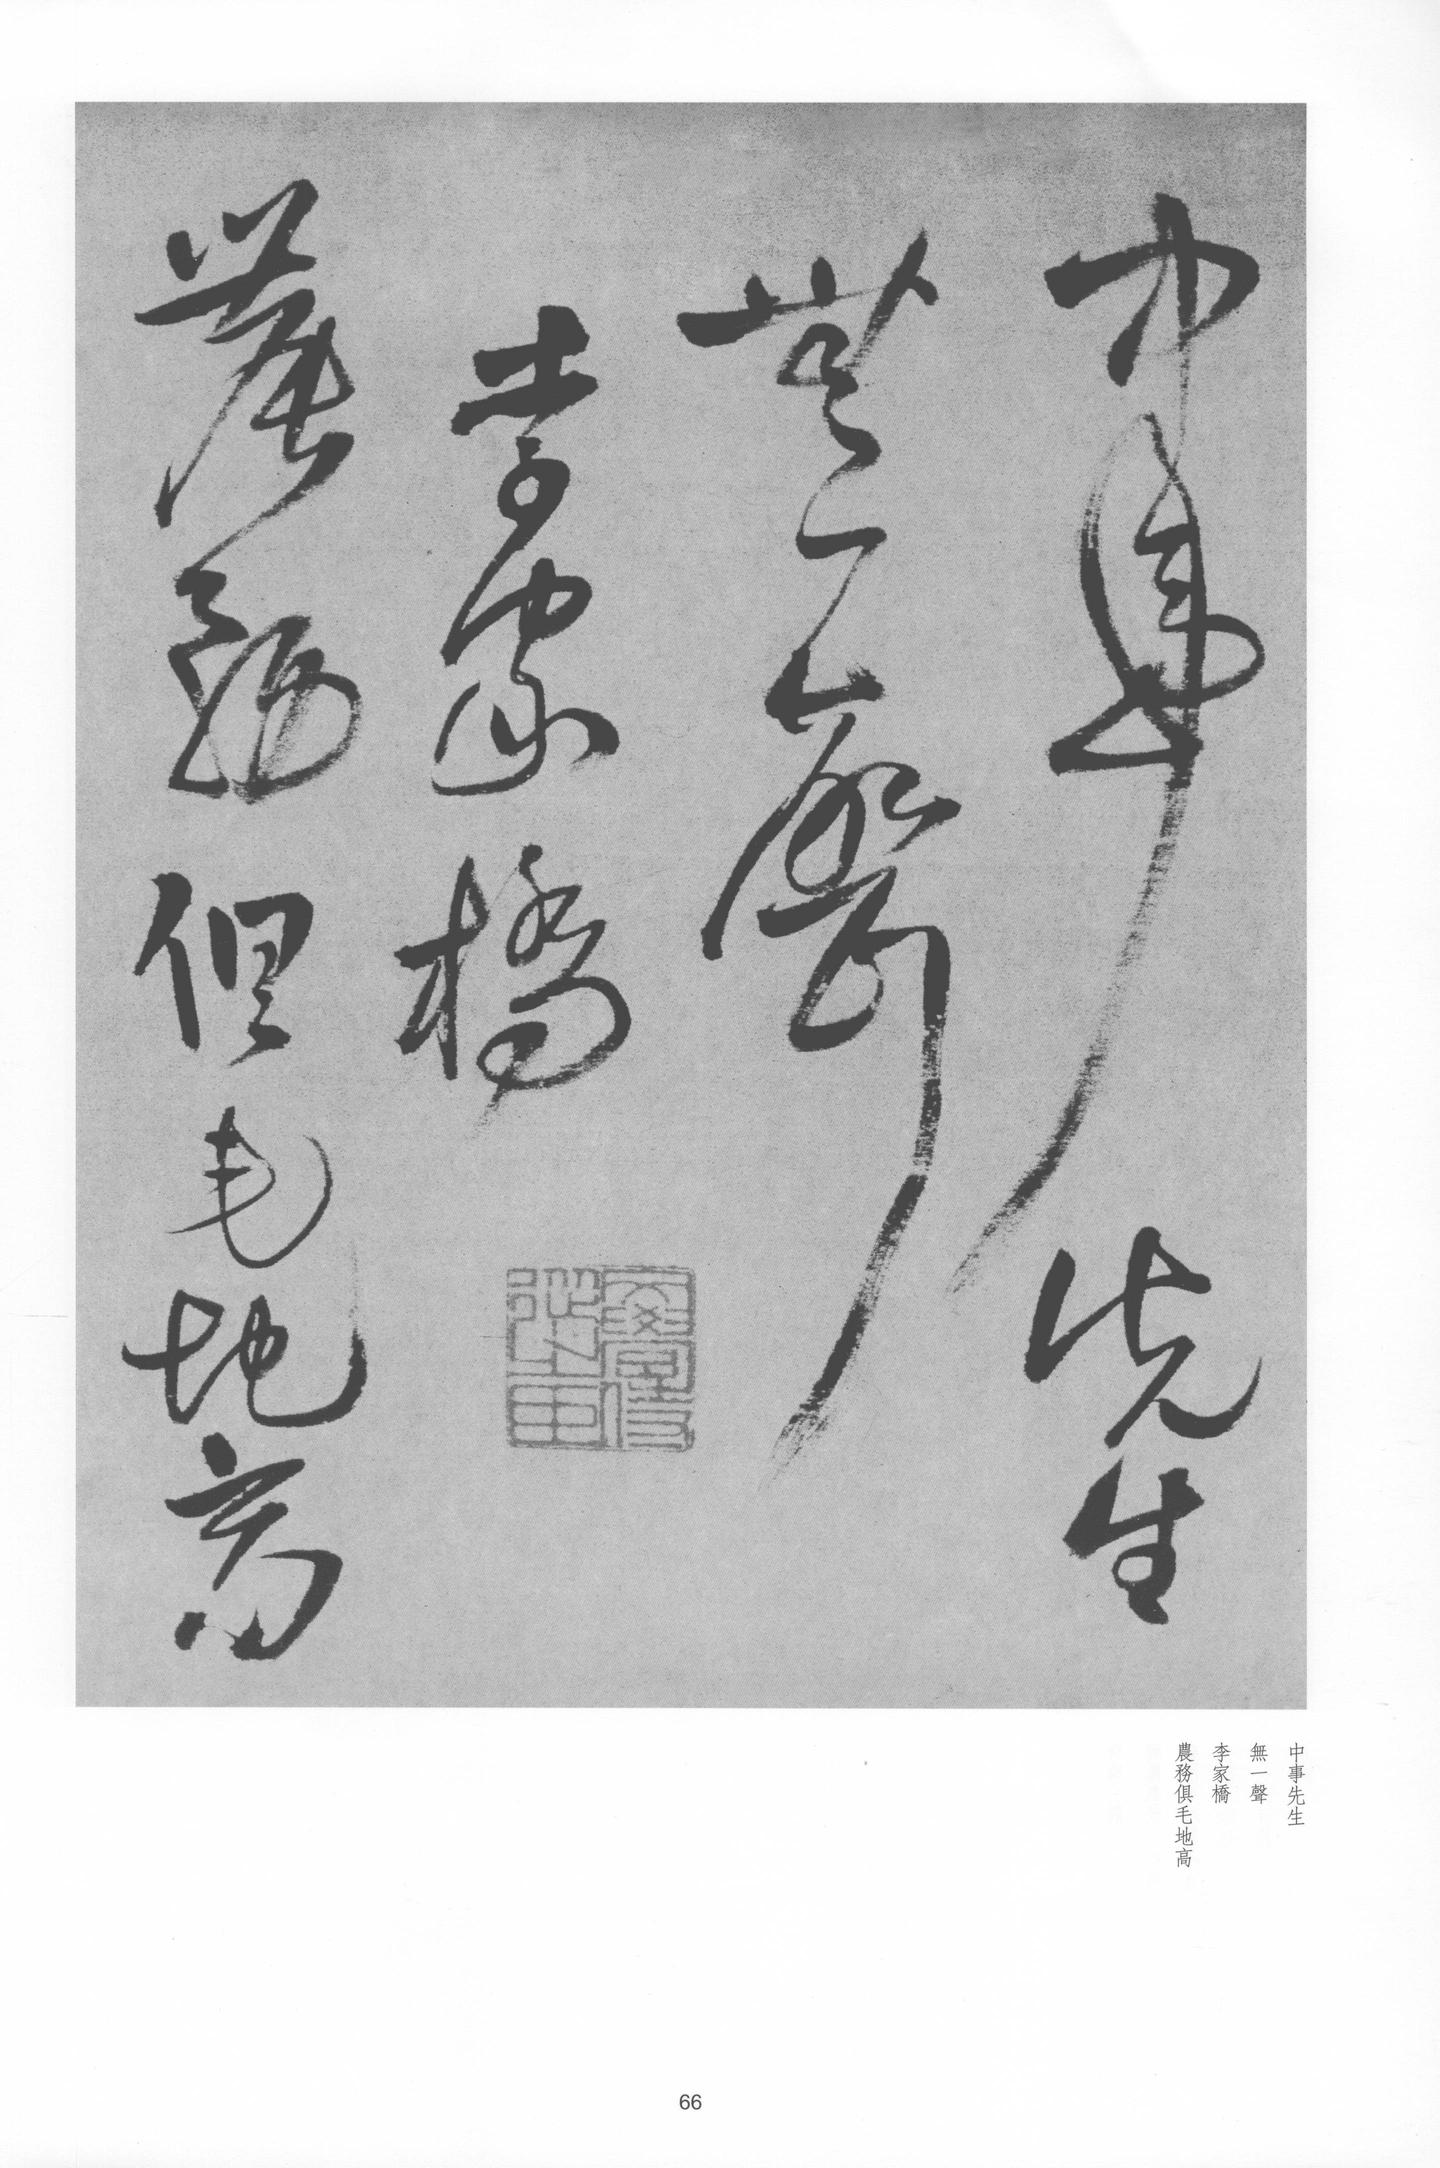 中事先生
無一聲
李家橋
農務俱毛地高
中事先生
無一聲
李家橋
農務俱毛地高
66